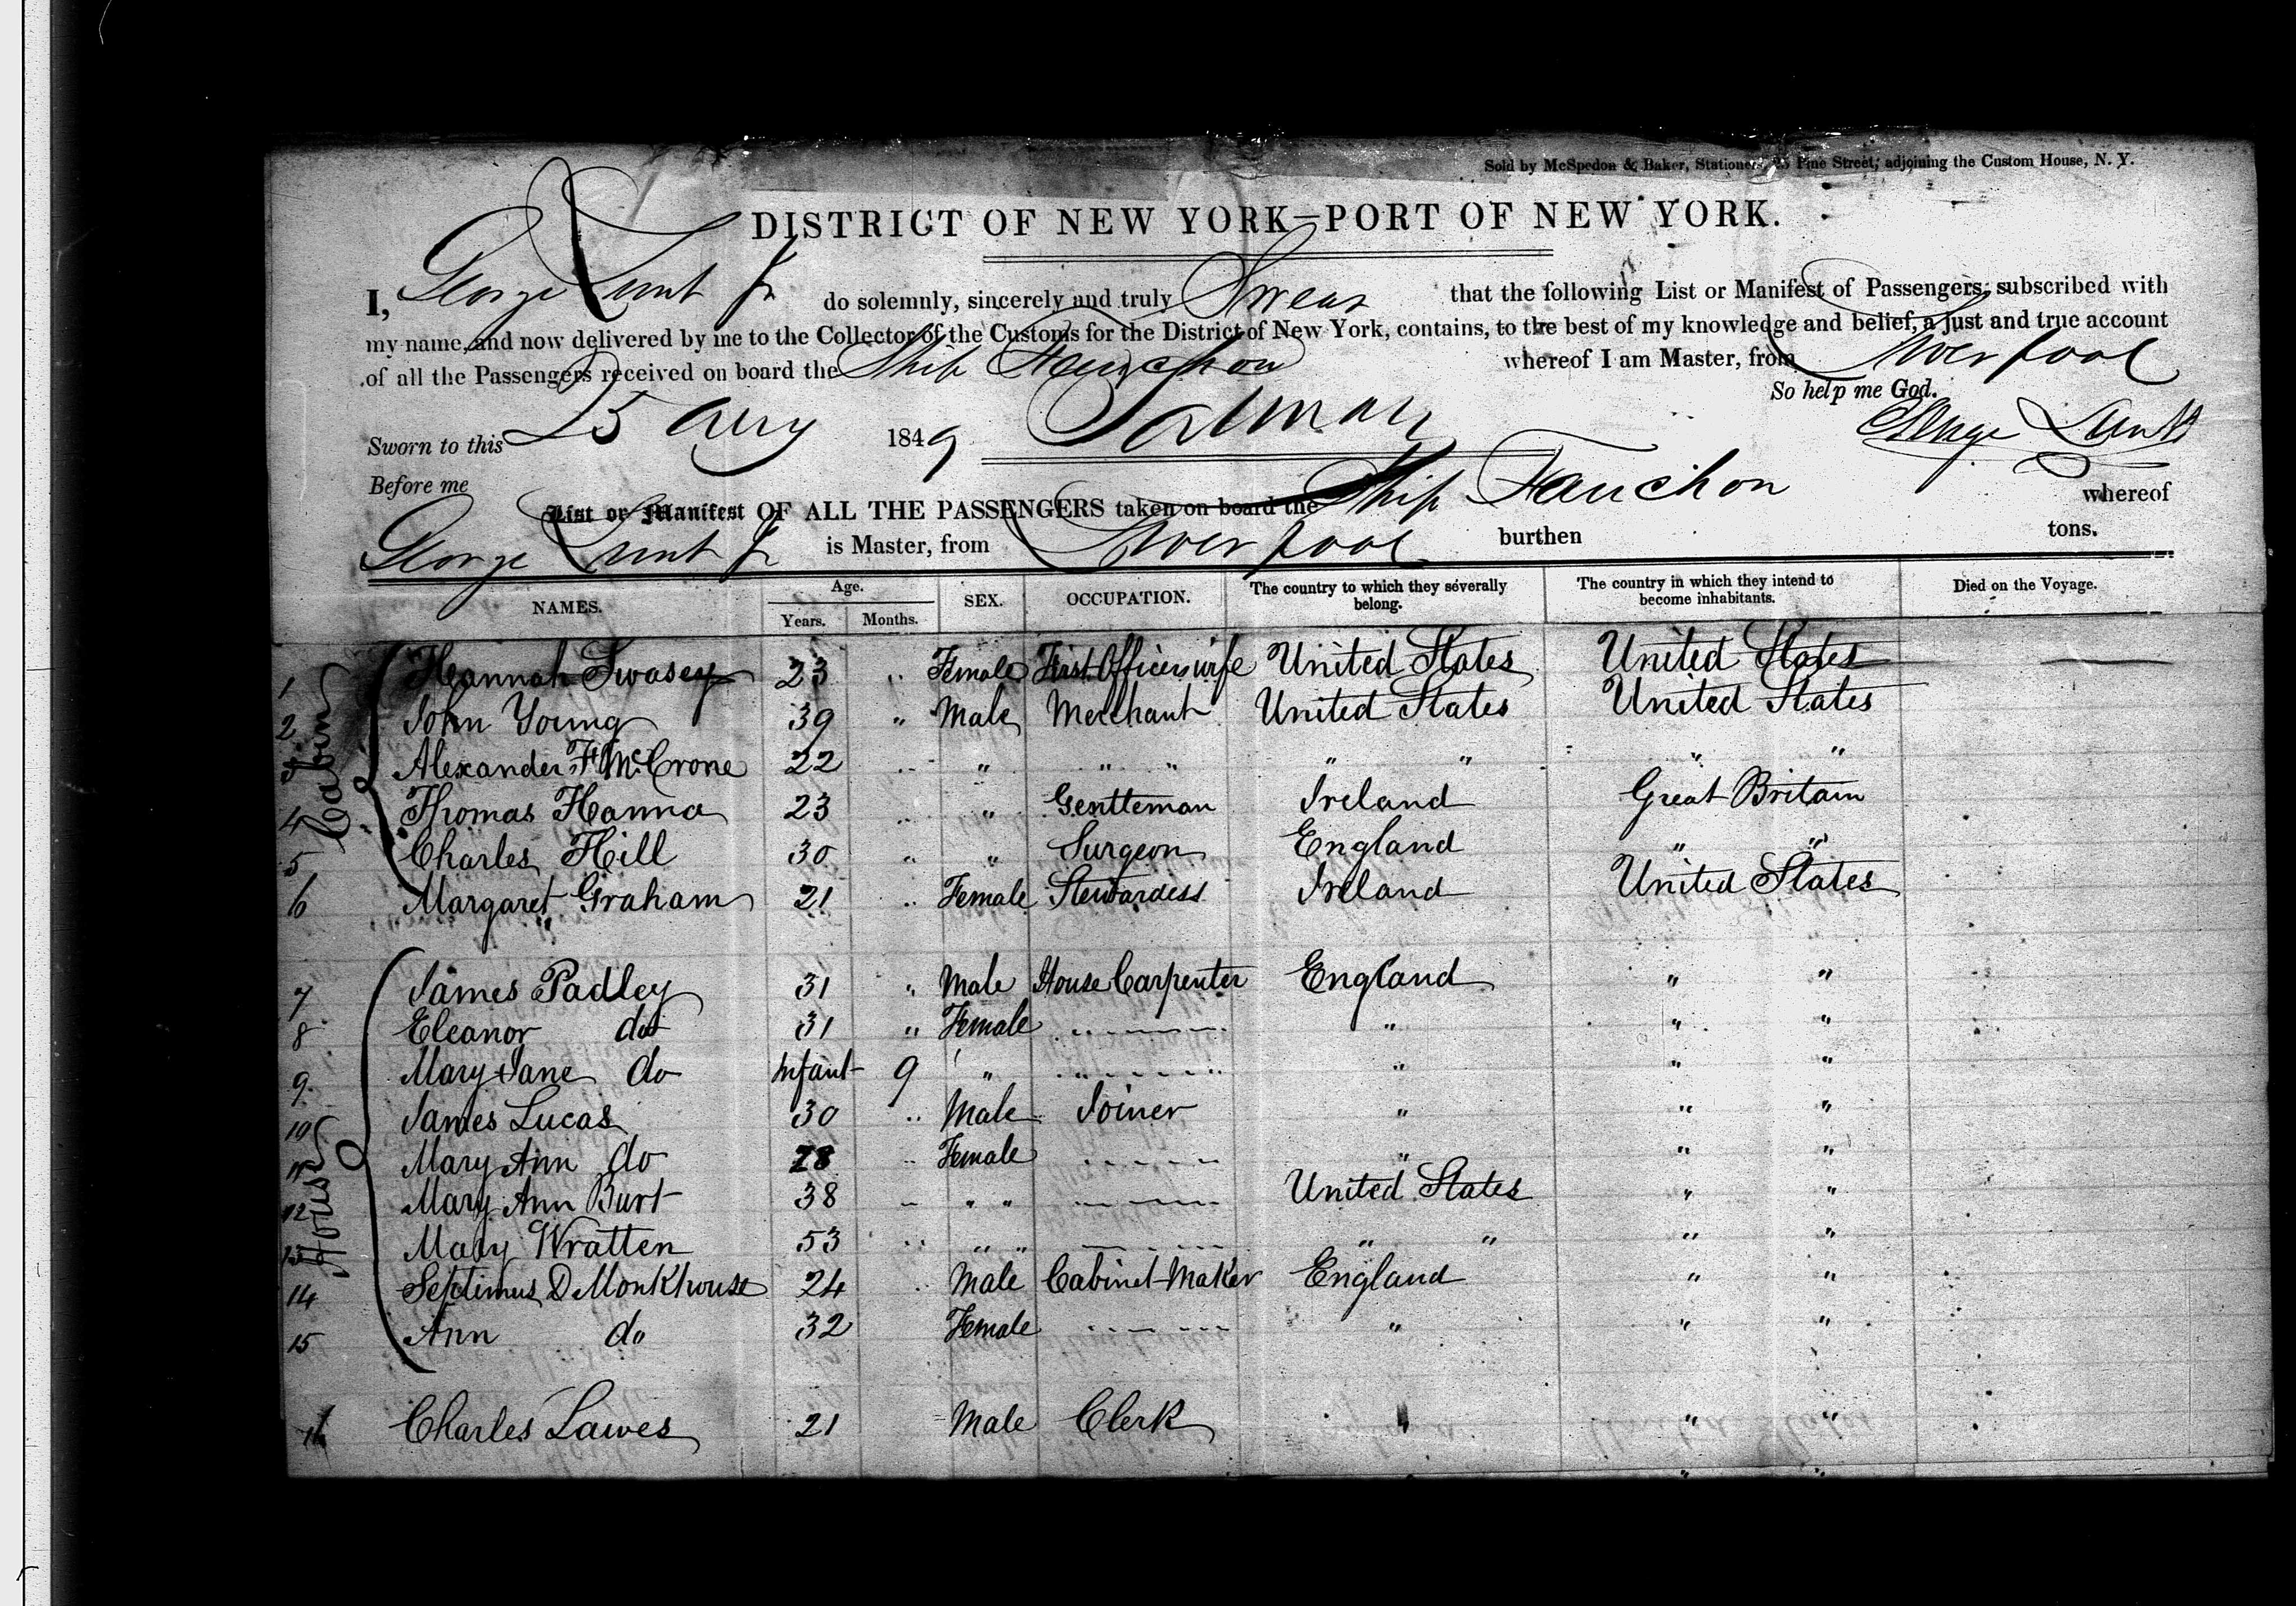 Sold by McSpedon & Baker, Stationers, 25 Pine Street, adjoining the Custom House, N. Y.
DISTRICT OF NEW YORK—PORT OF NEW YORK.
I, George Lunt Jr do solemnly, sincerely and truly Swear that the following List or Manifest of Passengers, subscribed with
my name, and now delivered by me to the Collector of the Customs for the District of New York, contains, to the best of my knowledge and belief, a just and true account
of all the Passengers received on board the Ship Fanchon whereof I am Master, from Liverpool
So help me God.
Sworn to this 25 Aug 1849 George Lunt
Before me
List or Manifest OF ALL THE PASSENGERS taken on board the Ship Fanchon whereof
George Lunt Jr is Master, from Liverpool burthen tons.
NAMES. Age. Years. Months. SEX. OCCUPATION. The country to which they severally belong. The country in which they intend to become inhabitants. Died on the Voyage.
Cabin
1 Hannah Swasey 23 " Female First Officers wife United States United States —
2 John Young 39 " Male Merchant United States United States
3 Alexander F McCrone 22 " " " " " " " "
4 Thomas Hanna 23 " " Gentleman Ireland Great Britain
5 Charles Hill 30 " " Surgeon England " "
6 Margaret Graham 21 " Female Stewardess Ireland United States
House
7 James Padley 31 " Male House Carpenter England " "
8 Eleanor do 31 " Female " " "
9 Mary Jane do Infant 9 " " " "
10 James Lucas 30 " Male Joiner " " "
11 Mary Ann do 28 " Female " " "
12 Mary Ann Burt 38 " " " United States " "
13 Mary Wratten 53 " " " " " " "
14 Septimus D Monkhouse 24 Male Cabinet Maker England " "
15 Ann do 32 Female " " "
16 Charles Lawes 21 Male Clerk " " "